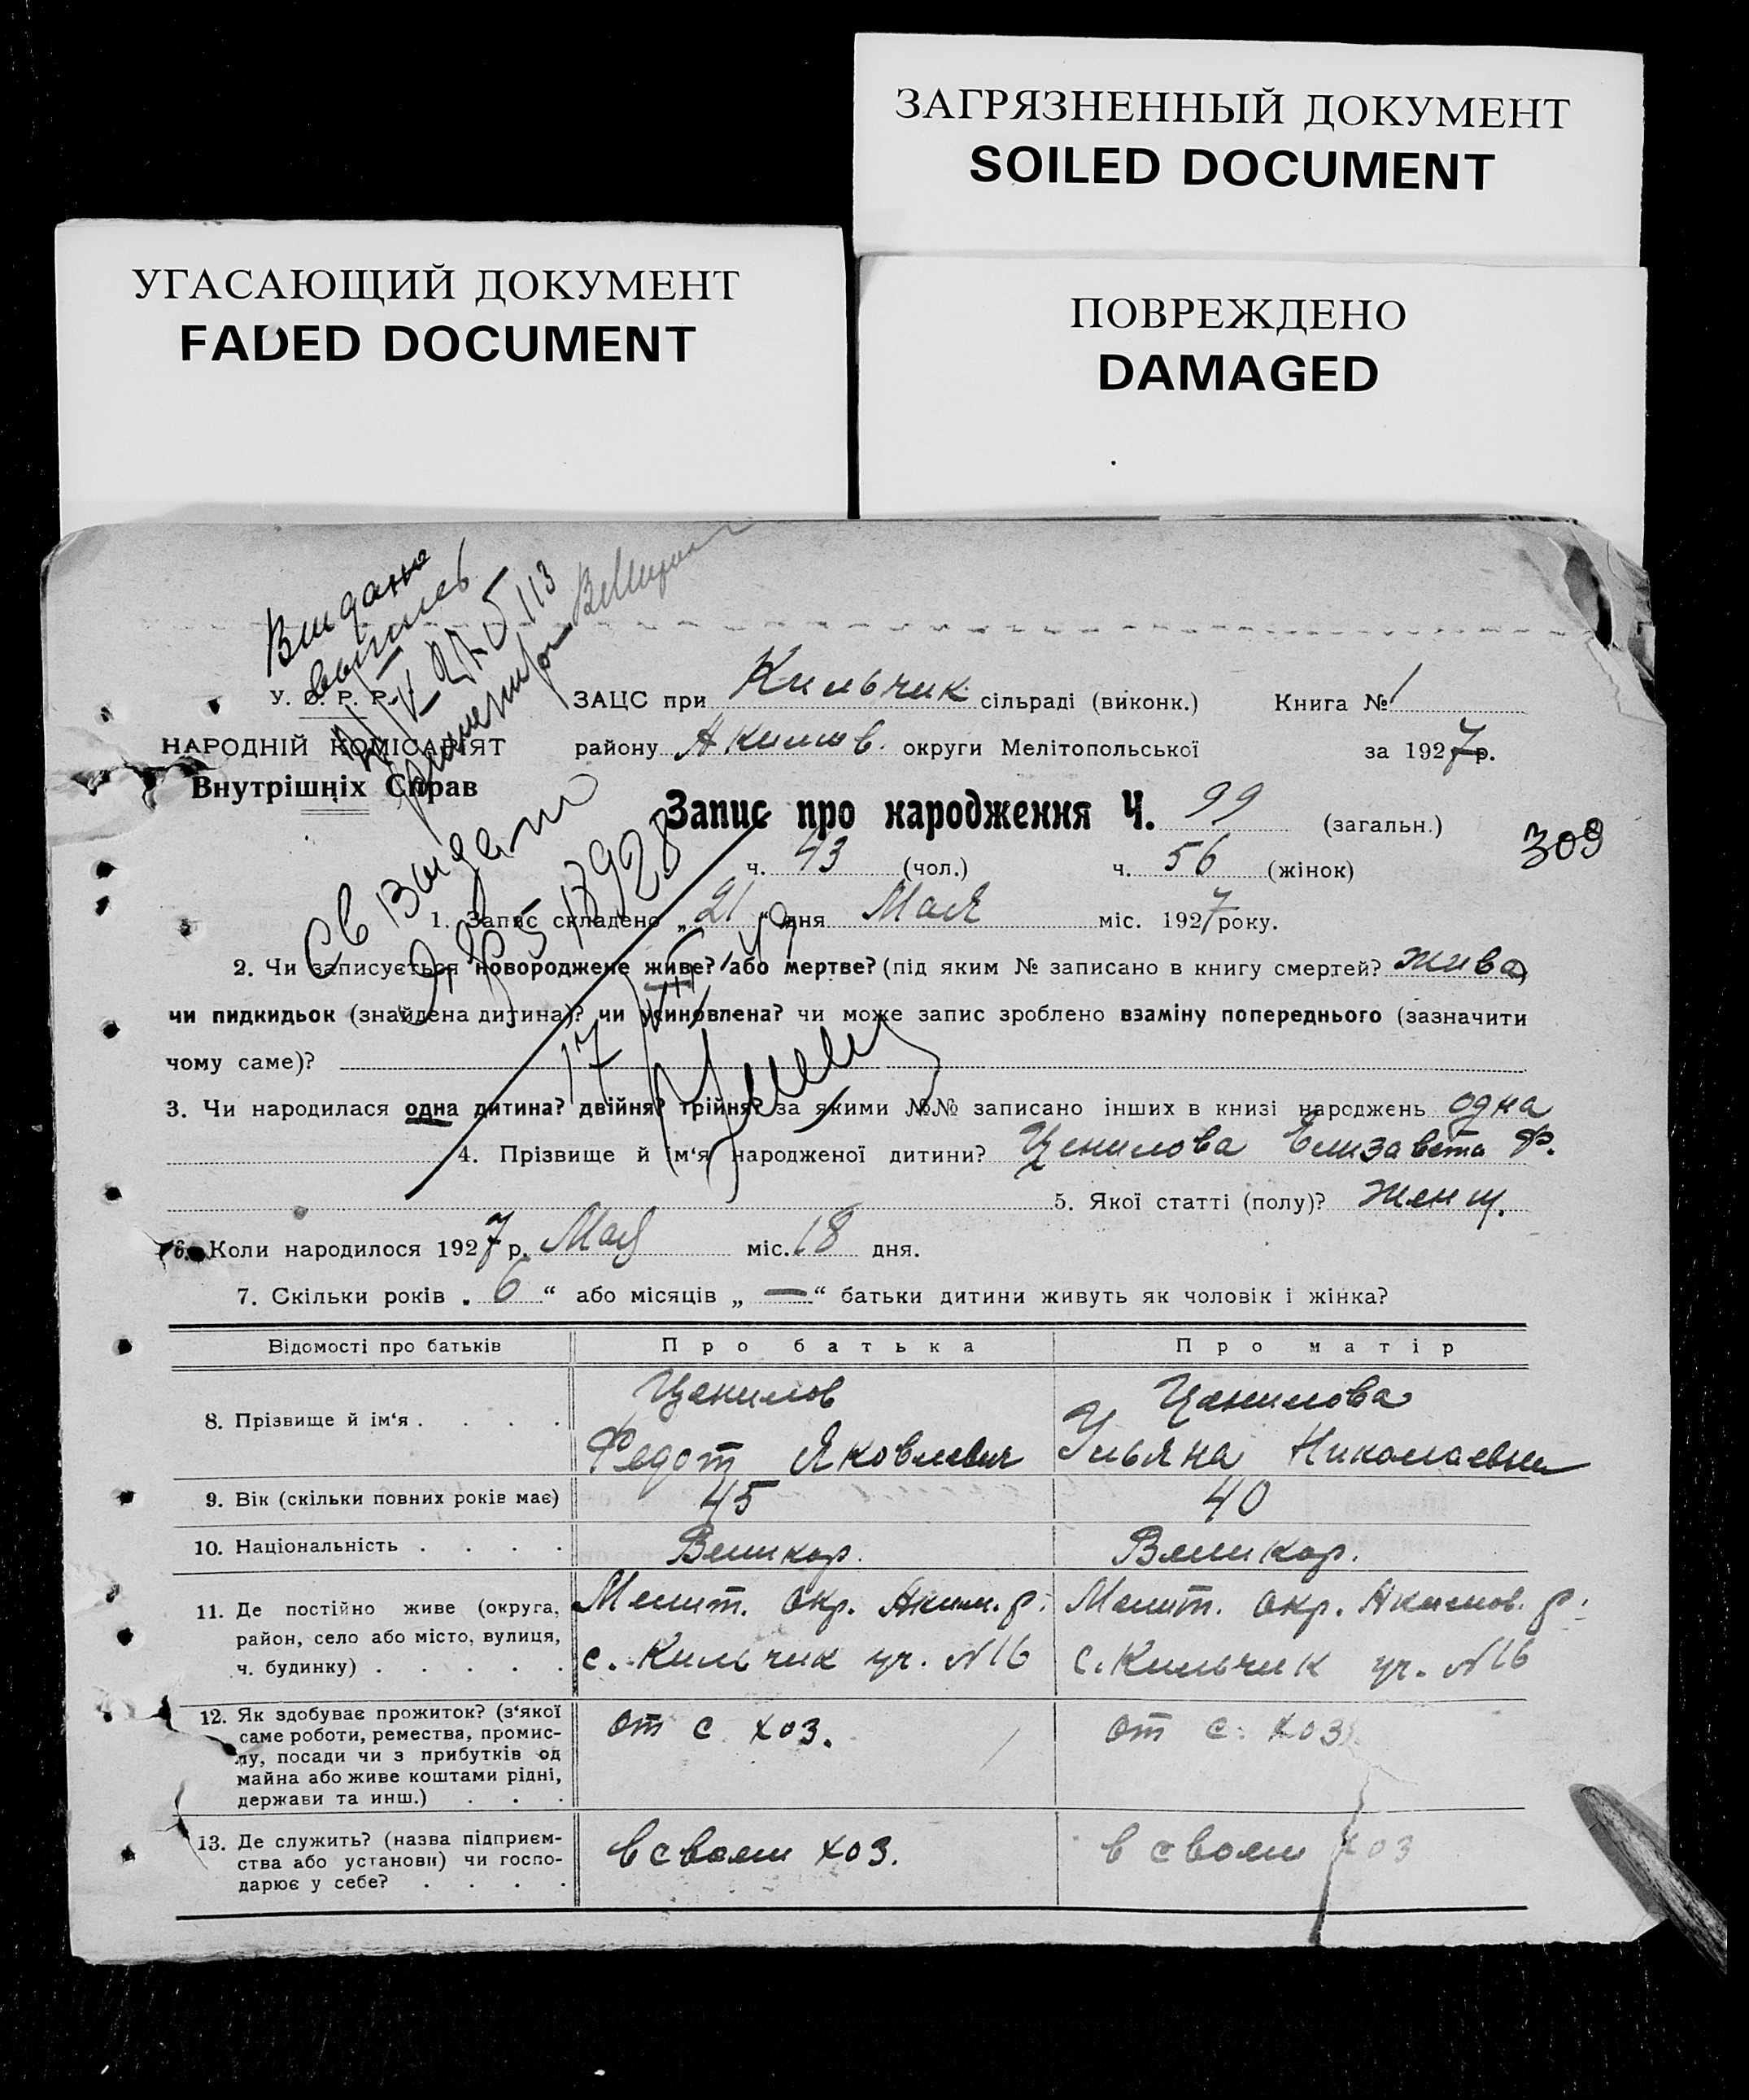 ЗАГРЯЗНЕННЫЙ ДОКУМЕНТ
SOILED DOCUMENT
УГАСАЮЩИЙ ДОКУМЕНТ
FADED DOCUMENT
ПОВРЕЖДЕНО
DAMAGED
Видано
выпись
У. С. Р. Р.
НАРОДНІЙ КОМІСАРІЯТ
Внутрішніх Справ
ЗАЦС при Кильчик сільраді (виконк.) Книга № 1
району Акимов. округи Мелітопольської за 1927 р.
Запис про народження Ч. 99 (загальн.)
309
ч. 43 (чол.) ч. 56 (жінок)
Св выдано
1928
1. Запис складено „21“ дня Мая міс. 1927 року.
2. Чи записується новороджене живе? або мертве? (під яким № записано в книгу смертей? жива)
чи пидкидьок (знайдена дитина)? чи усиновлена? чи може запис зроблено взаміну попереднього (зазначити
чому саме)?
3. Чи народилася одна дитина? двійня? трійня? за якими №№ записано інших в книзі народжень одна
4. Прізвище й ім‘я народженої дитини? Ценилова Елизавета Ф.
5. Якої статті (полу)? женщ.
6. Коли народилося 1927 р. Мая міс. 18 дня.
7. Скільки років „ 6 “ або місяців „ — “ батьки дитини живуть як чоловік і жінка?
Відомості про батьків Про батька Про матір
8. Прізвище й ім‘я . . . . Ценилов Ценилова
Федот Яковлевич Ульяна Николаевна
9. Вік (скільки повних років має) 45 40
10. Національність . . . . Великор. Великор.
11. Де постійно живе (округа, Мелит. окр. Аким. р. Мелит. окр. Акимов. р.
район, село або місто, вулиця,
ч. будинку) . . . . . с. Кильчик уч. №16 с. Кильчик уч. №16
12. Як здобуває прожиток? (з‘якої от с. хоз. от с. хоз.
саме роботи, ремества, промис-
лу, посади чи з прибутків од
майна або живе коштами рідні,
держави та инш.) . . .
13. Де служить? (назва підприєм- в своем хоз. в своем хоз
ства або установи) чи госпо-
дарює у себе? . . . .